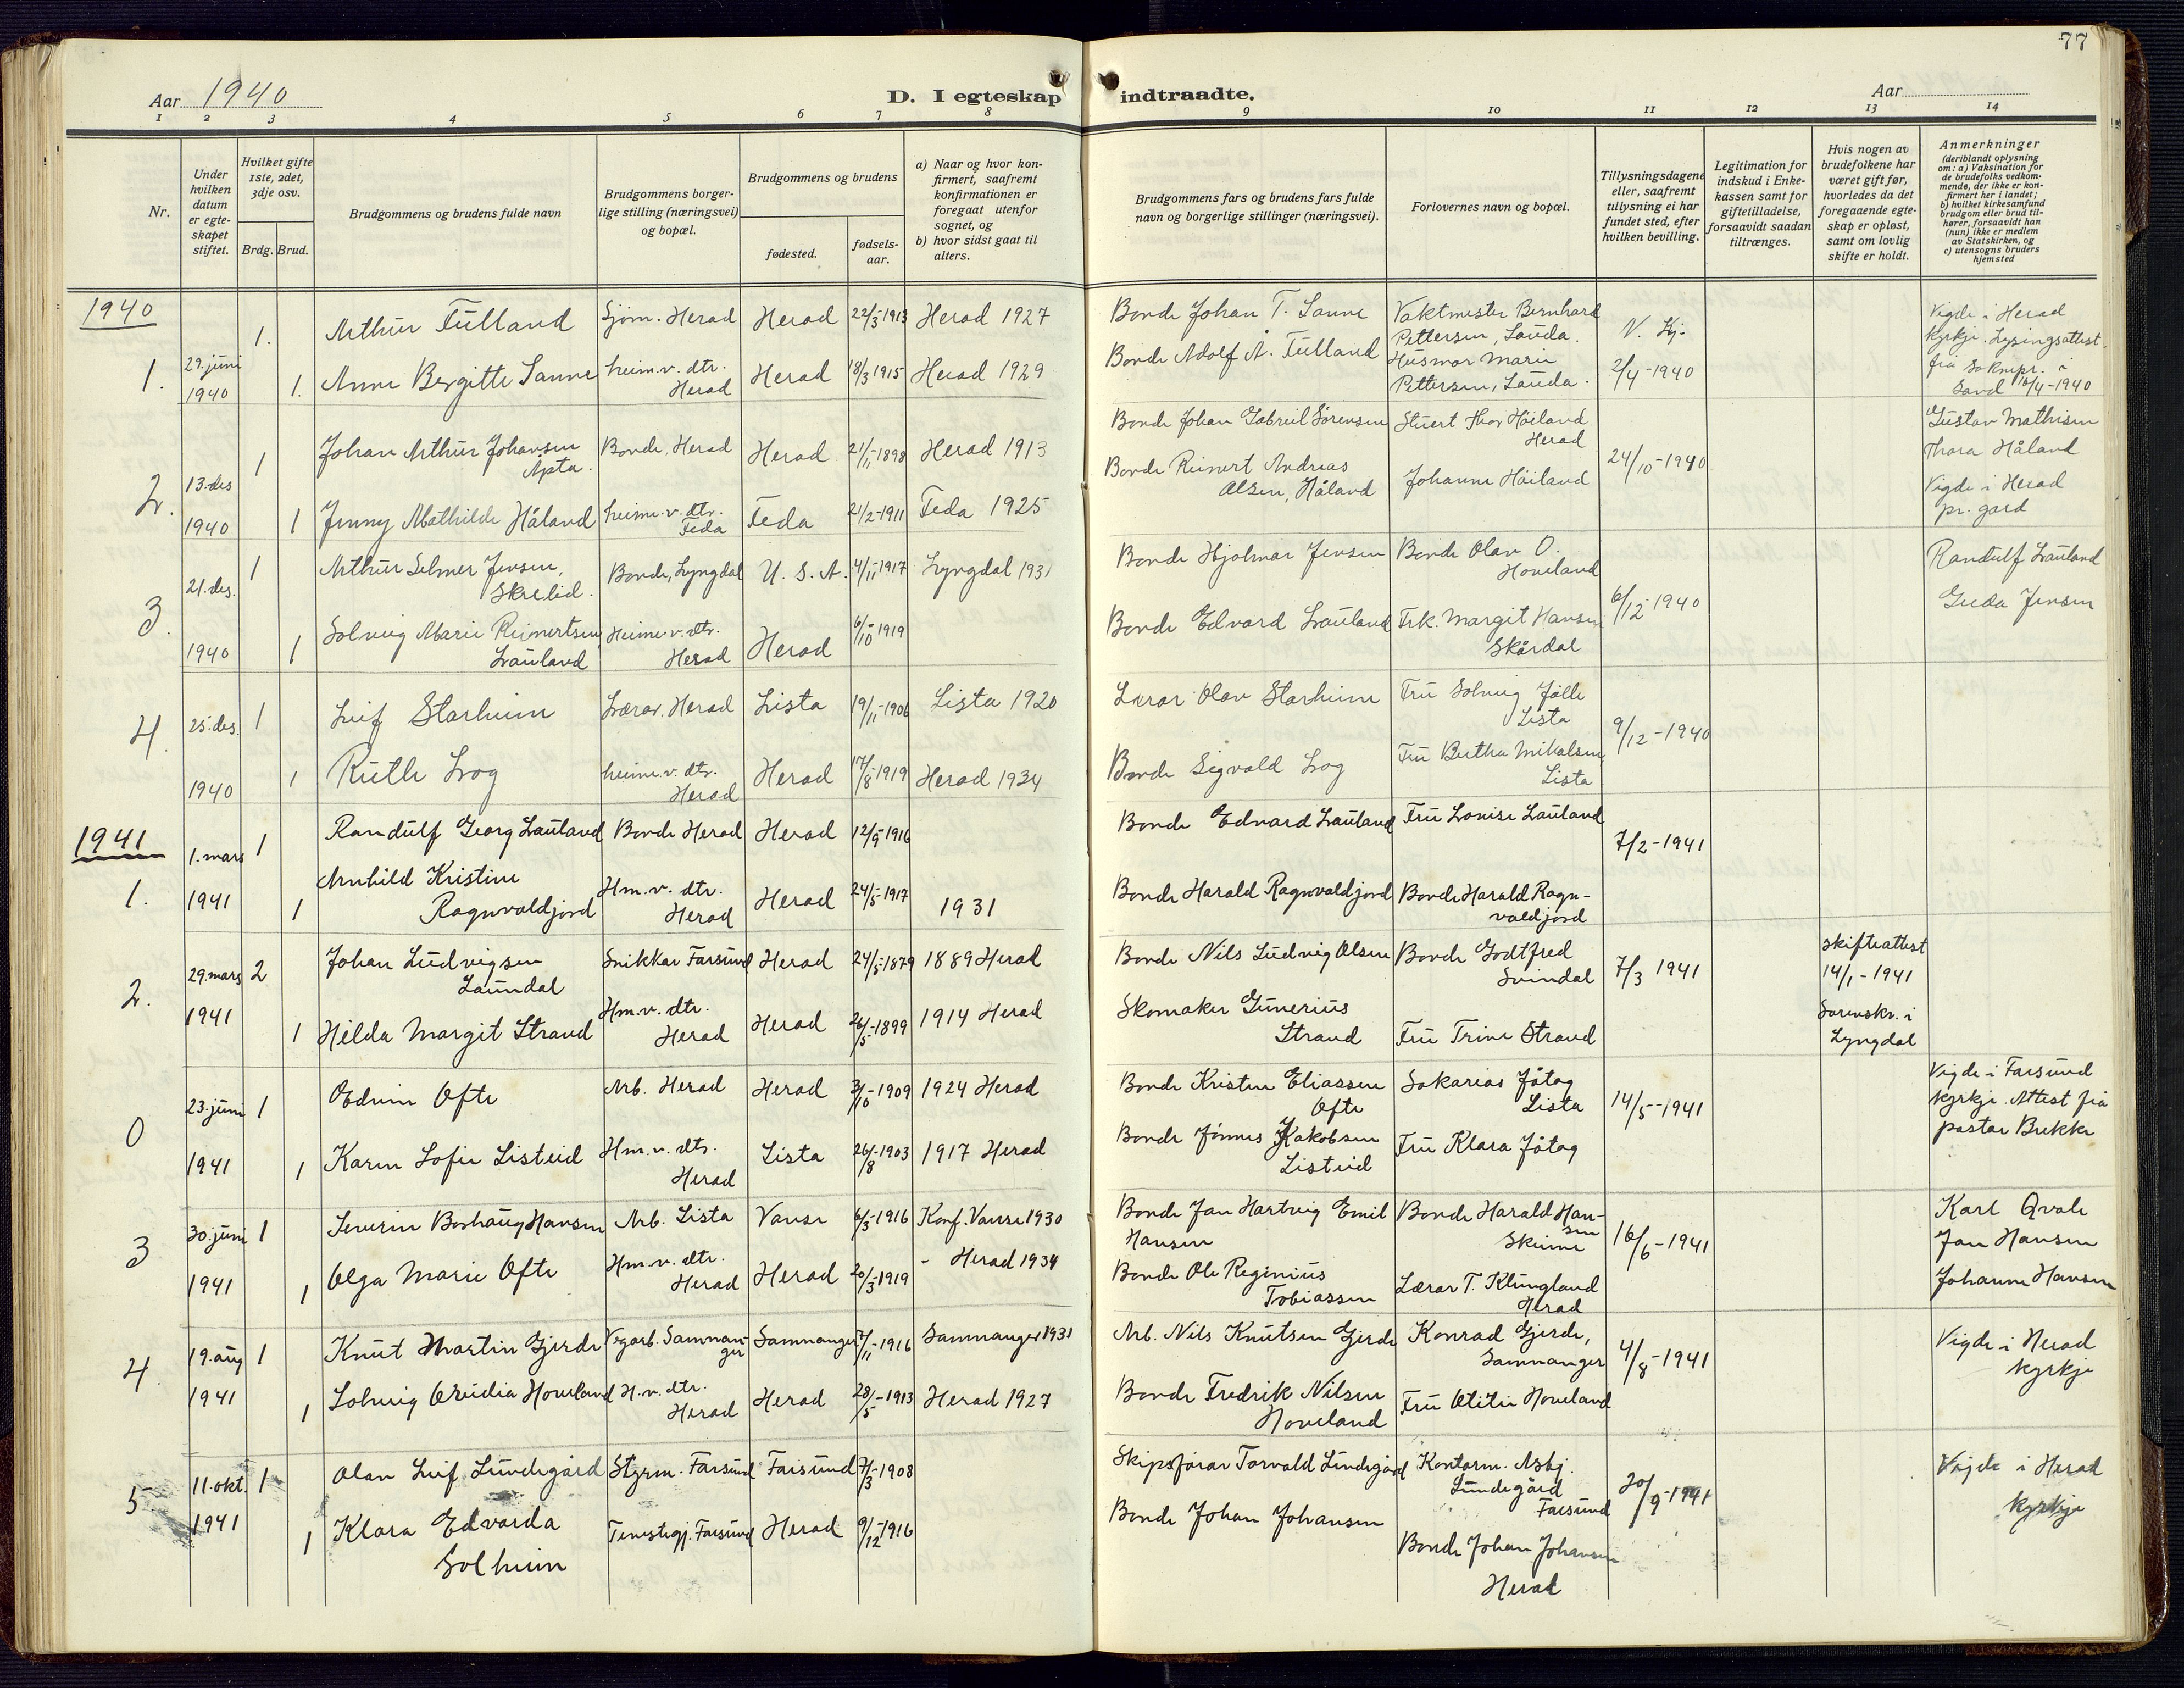 77
Aar 1940
D. I egteskap indtraadte.
Aar
1 2 3 4 5 6 7 8 9 10 11 12 13 14
Nr.
Under hvilken datum er egteskapet stiftet.
Hvilket gifte 1ste, 2det, 3dje osv.
Brdg. Brud.
Brudgommens og brudens fulde navn
Brudgommens borgerlige stilling (næringsvei) og bopæl.
Brudgommens og brudens
fødested.
fødsels-aar.
a) Naar og hvor konfirmert, saafremt konfirmationen er foregaat utenfor sognet, og
b) hvor sidst gaat til alters.
Brudgommens fars og brudens fars fulde navn og borgerlige stillinger (næringsvei).
Forlovernes navn og bopæl.
Tillysningsdagene eller, saafremt tillysning ei har fundet sted, efter hvilken bevilling.
Legitimation for indskud i Enkekassen samt for giftetilladelse, forsaavidt saadan tiltrænges.
Hvis nogen av brudefolkene har været gift før, hvorledes da det foregaaende egteskap er opløst, samt om lovlig skifte er holdt.
Anmerkninger
(deriblandt oplysning om: a) Vaksination for de brudefolks vedkommende, der ikke er konfirmert her i landet; b) hvilket kirkesamfund brudgom eller brud tilhører, forsaavidt han (hun) ikke er medlem av Statskirken, og c) utensogns bruders hjemsted
1940
1. 29. juni 1940 1. Arthur Tulland Sjøm. Herad Herad 22/3 1913 Herad 1927 Bonde Johan T. Sanne Vaktmester Bernhard Pettersen, Lauda. N. Kj. 2/4-1940 Vigde i Herad kyrkje. Lysingsattest frå soknepr. i Sand 16/4-1940
1. Anne Bergitte Sanne heim.v. dtr. Herad Herad 18/3 1915 Herad 1929 Bonde Adolf A. Tulland Husmor Marie Pettersen, Lauda.
2. 13. des 1940 1 Johan Arthur Johansen Apta. Bonde, Herad Herad 21/11-1898 Herad 1913 Bonde Johan Gabriel Sørensen Stuert Thor Høiland Herad 24/10-1940 Gustav Mathisen Thora Håland Vigde i Herad pr. gard
1 Jenny Mathilde Håland heime.v. dtr. Feda Feda 21/2-1911 Feda 1925 Bonde Reinert Andreas Olsen, Håland Johanne Høiland
3. 21. des. 1940 1 Arthur Selmer Jensen, Skrelid. Bonde, Lyngdal U. S. A. 4/11 1917 Lyngdal 1931 Bonde Hjalmar Jensen Bonde Olav O. Hoveland 6/12 1940 Randulf Lauland
1 Solveig Marie Reinertsen Lauland Heime.v. dtr. Herad Herad 6/10 1919 Bonde Edvard Lauland Frk. Margit Hansen Skårdal Jensen
4. 25. des. 1940 1 Leif Starheim Lærar. Herad Lista 19/11-1906 Lista 1920 Lærar Olav Starheim Fru Solveig Jølle Lista 9/12-1940
1 Ruth Log heime.v. dtr. Herad Herad 17/8-1919 Herad 1934 Bonde Sigvald Log Fru Bertha Mikalsen Lista
1941
1. 1. mars 1941 1 Randulf Georg Lauland Bonde Herad Herad 12/9-1916 Bonde Edvard Lauland Fru Lovise Lauland 7/2-1941
1 Arnhild Kristine Ragnvaldjord Hm.v. dtr. Herad Herad 24/5-1917 1931 Bonde Harald Ragnvaldjord Bonde Harald Ragnvaldjord
2. 29. mars 1941 2 Johan Ludvigsen Laundal Snikkar Farsund Herad 24/5-1879 1889 Herad Bonde Nils Ludvig Olsen Bonde Godtfred Svindal 7/3 1941 Skifteattest 14/1-1941 Sorenskr. i Lyngdal
1 Hilda Margit Strand Hm.v. dtr. Herad Herad 26/5-1899 1914 Herad Skomaker Gunerius Strand Fru Trine Strand
0 23. juni 1941 1 Edvin Ofte Arb. Herad Herad 3/10-1909 1924 Herad Bonde Kristen Eliassen Ofte Sakarias Jåtog Lista 14/5-1941 Vigde i Farsund kyrkje. Attest frå pastor Brekke
1 Karen Sofie Listeid Hm.v. dtr. Herad Lista 26/8-1903 1917 Herad Bonde Jønnes Jakobsen Listeid Fru Klara Jåtog
3 30. juni 1941 1 Severin Borhaug Hansen Arb. Lista Vanse 6/3-1916 Konf. Vanse 1930 Bonde Jan Hartvig Emil Hansen Bonde Harald Hansen Skeime 16/6-1941 Karl Qvale Jan Hansen Johanne Hansen
1 Olga Marie Ofte Hm.v. dtr. Herad Herad 20/3-1919 - Herad 1934 Bonde Ole Reginius Tobiassen Lærar T. Klungland Herad
4. 19. aug 1941 1 Knut Martin Gjerde Vegarb. Samnanger Samnanger 7/11-1916 Samnanger 1931 Arb. Nils Knutsen Gjerde Konrad Gjerde, Samnanger 4/8-1941 Vigde i Herad kyrkje
1 Solveig Hoveland H.v. dtr. Herad Herad 28/5-1913 Herad 1927 Bonde Fredrik Nilsen Hoveland Fru Otitie Hoveland
5 11. okt. 1941 1 Olav Leif Lundegård Styrm. Farsund Farsund 7/3-1908 Skipsførar Torvald Lundegård Kontorm. Asbj. Lundegård Farsund 20/9-1941 Vigde i Herad kyrkje
1 Klara Edvarda Solheim Tenestegj. Farsund Herad 9/12-1916 Bonde Johan Johansen Bonde Johan Johansen Herad